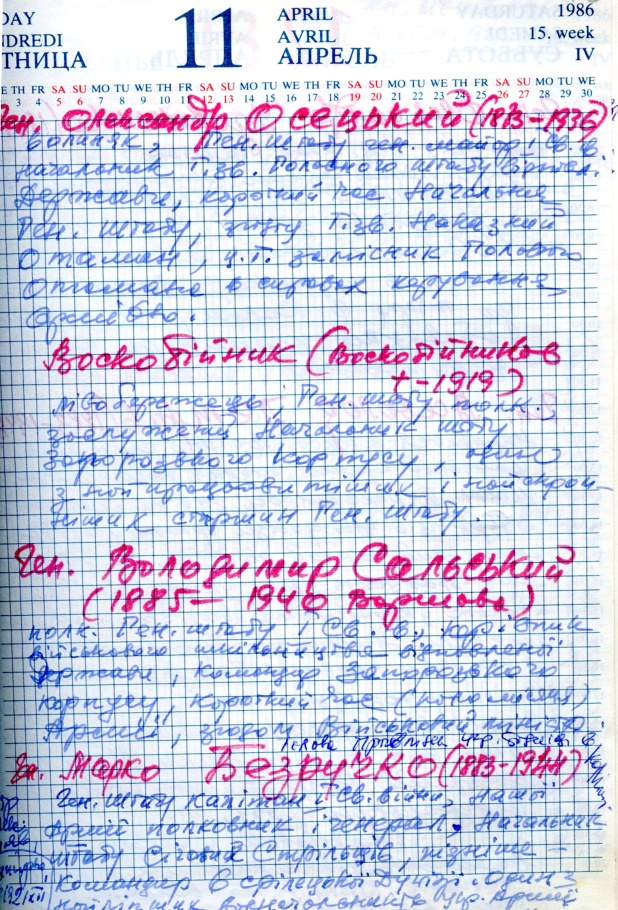 DAY
NDREDI
ТНИЦА
11
APRIL
AVRIL
АПРЕЛЬ
1986
15. week
IV
E TH FR SA SU MO TU WE TH FR SA SU MO TU WE TH FR SA SU MO TU WE TH FR SA SU MO TU WE
3 4 5 6 7 8 9 10 11 12 13 14 15 16 17 18 19 20 21 22 23 24 25 26 27 28 29 30
Ген. Олександр Осецький (1873-1936)
Волиняк, Ген. штабу ген. майор І Св. в.
начальник т.зв. Головного штабу
Держави, короткий час Начальник
Ген. штабу, т.зв. Наказний
Отаман, ч.т. заступник Головного
Отамана в справах керування
Армією.
Воскобійник (Воскобійников
+ - 1919)
лівобережець, Ген. штабу полк.,
заслужений Начальник штабу
Запорозького Корпусу, один
з найпрацьовитіших і найскром-
ніших старшин Ген. штабу.
Ген. Володимир Сальський
(1885 - 1940 Варшава)
полк. Ген. штабу І Св. в., керівник
військового
Держави, командир Запорозького
корпусу, короткий час
Армії, згодом Військовий міністр
Ген. Марко Безручко (1883-1944)
Ген. штабу капітан І Св. війни, нашої
Армії полковник і генерал. Начальник
штабу Січових Стрільців, пізніше -
Командир 6 стрілецької Дивізії. Один з
Укр. Армії